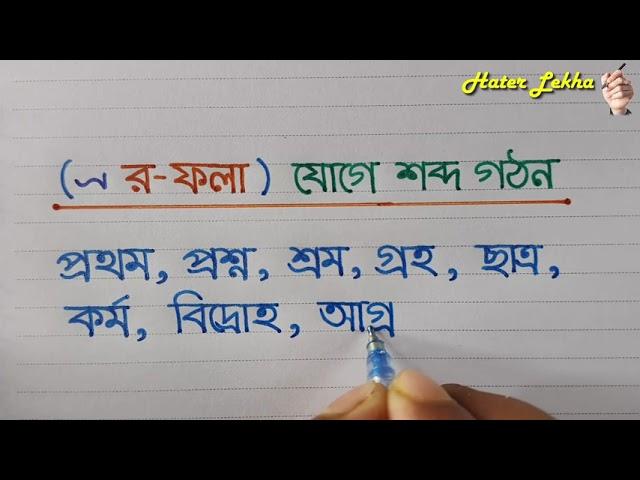 Hater Lekha
(্র র-ফলা) যোগে শব্দ গঠন
প্রথম, প্রশ্ন, শ্রম, গ্রহ, ছাত্র,
কর্ম, বিদ্রোহ, আগ্র